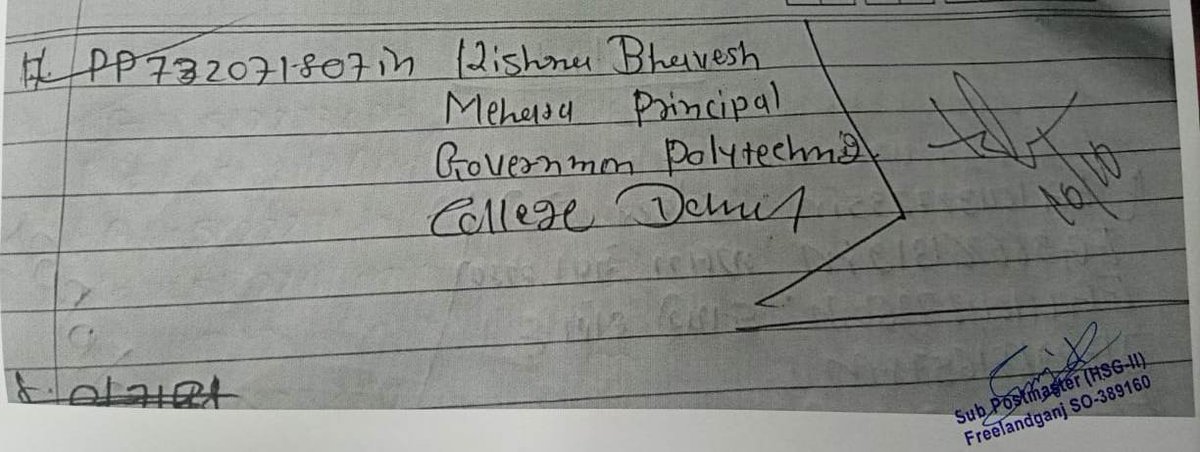 17 PP732071807in Kishna Bhavesh
Mehara Principal
Governmon Polytechnic
College Dahod
10/10
Sub Postmaster (HSG-II)
Freelandganj SO-389160